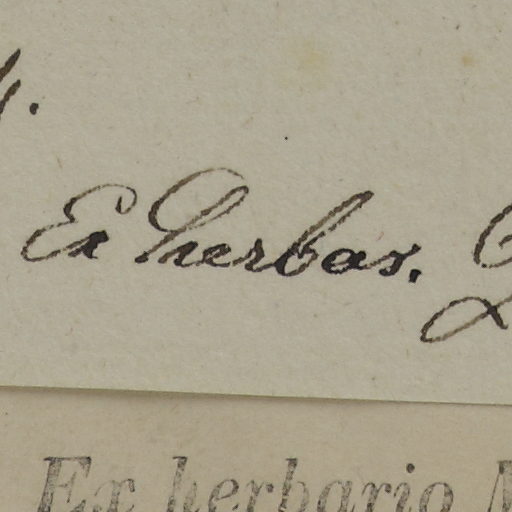 Ex herbar.
Ex herbario